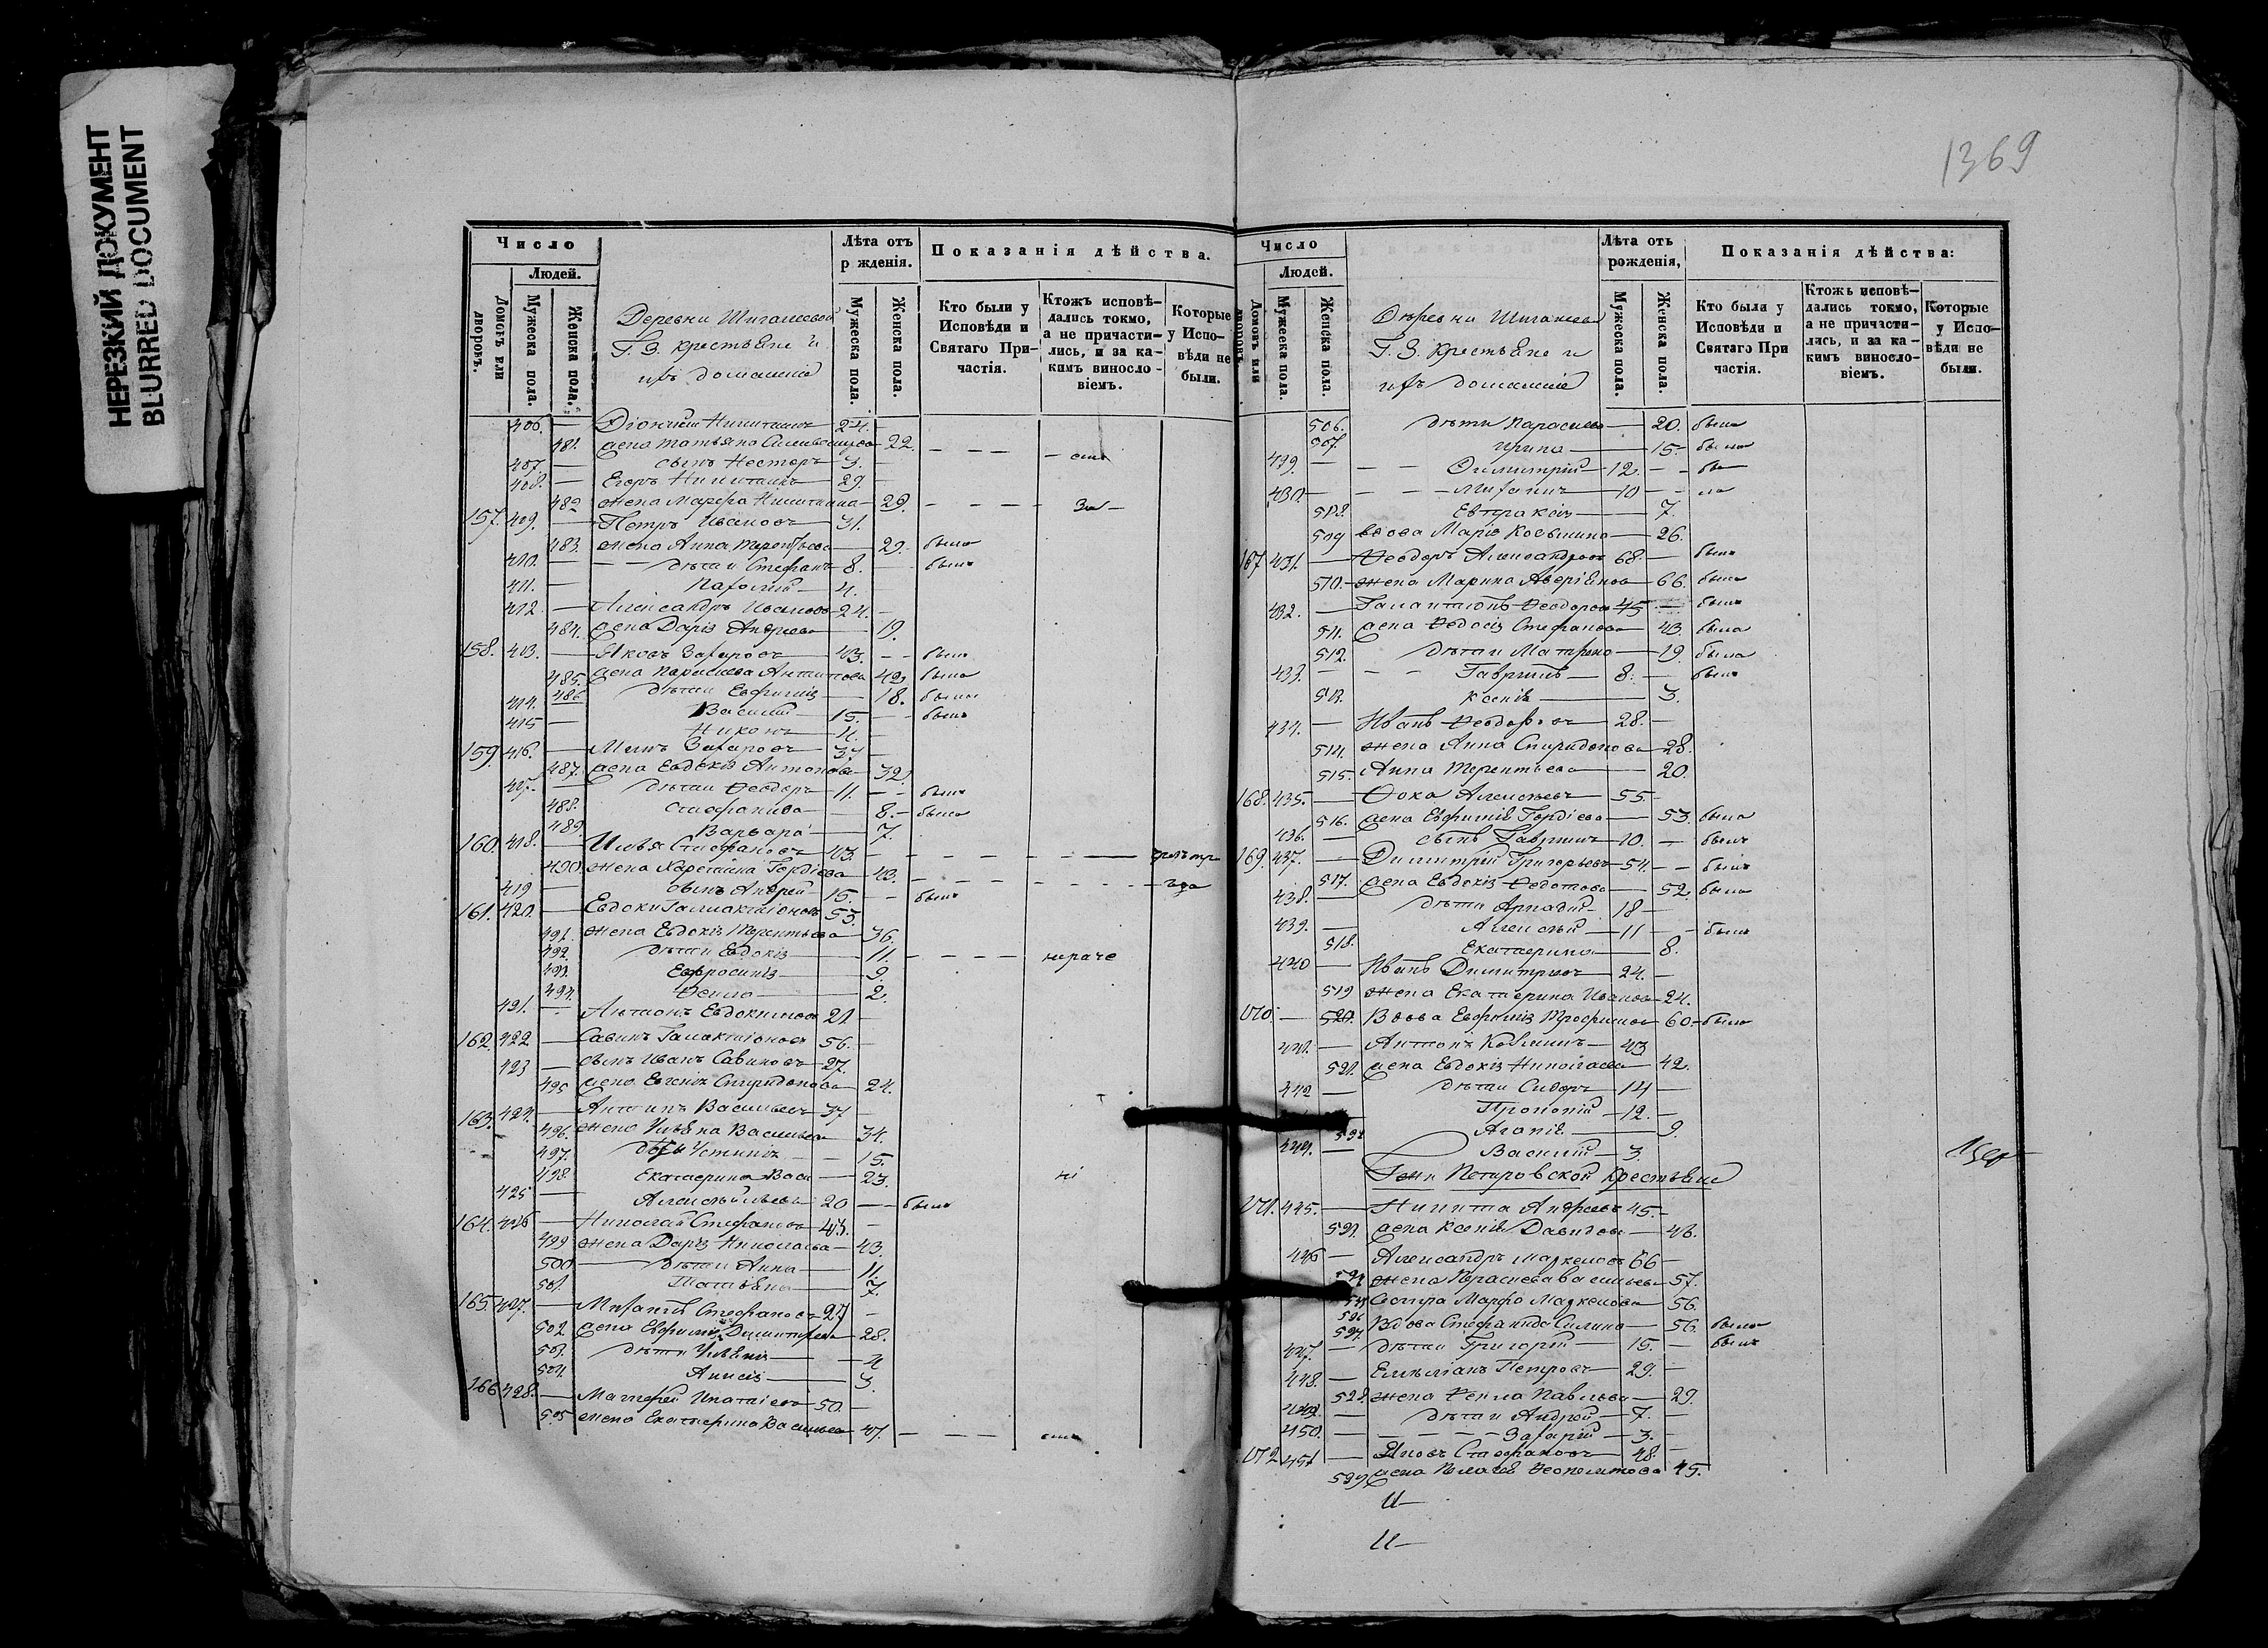 НЕРЕЗКИЙ ДОКУМЕНТ
BLURRED DOCUMENT
1369
Число
Людей.
Домовъ или дворовъ.
Мужеска пола.
Женска пола.
Деревни Шигалеевой
Г. З. крестьяне и
ихъ домашніе
Лѣта отъ
р жденія.
Мужеска пола.
Женска пола.
Показанія дѣйства.
Кто были у
Исповѣди и
Святаго При-
частія.
Ктожъ исповѣ-
дались токмо,
а не причасти-
лись, и за ка-
кимъ виносло-
віемъ.
Которые
у Испо-
вѣди не
были.
406. — 24. —
481. жена Татьяна 22. — — —
407. — сынъ Несторъ — 3. —
408. — Егоръ Никитинъ — 29. —
482 жена Марфа Никитина — 29. — — — —
157. 409. — Петръ Ивановъ — 31.
483. жена Анна Терентьева — 29. была
410. — дѣти Стефанъ — 8. — былъ
411. — 4.
412 — Александръ Ивановъ — 24. —
484. жена Дарія Андреева — 19.
158. 413. — Яковъ Захаровъ — 43. — былъ
485. жена Параскева 42 была
486 дѣти Евфимія — 18. была
414. Василій — 15. — былъ
415 — Никонъ — 11. —
159. 416. — Захаровъ — 37 —
487. жена Евдокія Антонова — 32
417. — дѣти Ѳеодоръ — 11. — былъ
488. Стефанида — 8. — была
489. Варвара — 7.
160. 418. — Илья Стефановъ — 43. —
490. жена Гордіева — 43. —
419 — сынъ Андрей — 15. — былъ
161. 420. — 53.
491. жена Евдокія Терентьева — 36.
492. дѣти Евдокія — 11. — — — —
493. Евфросинія — 9.
494. Ѳекла — 2.
421. — Евдокимовъ 21 —
162. 422 — Савинъ Галактіоновъ 56. —
423 — сынъ Иванъ Савиновъ — 27.
495 жена Евгенія Спиридонова — 24.
163. 424. — Антипъ Васильевъ 37 —
496. жена Васильева 34.
497. — 15.
498. Екатерина — 23.
425 — 20 — былъ
164. 426 — Николай Стефановъ — 43. —
499 жена Дарія Николаева — 43.
500 — дѣти Анна — 11.
501. Татьяна — 7.
165. 427. — Стефановъ — 27 —
502 жена Евфимія Димитріева — 28.
503. дѣти — 4
504. Анисія — 3.
166 428. — Матфей — 50. —
505 жена Екатерина Васильева — 47. — — —
Число
Людей.
Домовъ или дворовъ.
Мужеска пола.
Женска пола.
Деревни Шигалеевой
Г. З. крестьяне и
ихъ домашніе
Лѣта отъ
рожденія,
Мужеска пола.
Женска пола.
Показанія дѣйства:
Кто были у
Исповѣди и
Святаго При
частія.
Ктожъ исповѣ-
дались токмо,
а не причасти-
лись, и за ка-
кимъ виносло-
віемъ.
Которые
у Испо-
вѣди не
были.
506. дѣти Параскева — 20. была
507. Ирина — 15. — была
429. — — — Димитрій — 12. — —
430. — — — 10 — —
508. Евпраксія — 7.
509 вдова Марія Космина — 26.
167 431. — Ѳеодоръ Александровъ 68. — былъ
510. — жена Марина Аверіянова — 66. была
432. — Галактіонъ Ѳеодоровъ 45 — былъ
511. жена Ѳедосія Стефанова — 43. была
512. дѣти Матрена — 19. была
433. — — — Гавріилъ — 8. — былъ
513. Ксенія — 3.
434. — Иванъ Ѳеодоровъ — 28. —
514. жена Анна Спиридонова — 28.
515. Анна Терентьева — 20.
168. 435. — Фока Алексѣевъ — 55. —
516. жена Евфимія Гордіева — 53. была
436. — сынъ Гавріилъ — 10. — былъ
169. 437. — Димитрій Григорьевъ — 54. — былъ
517. жена Евдокія Ѳедотова — 52. была
438. — дѣти Аркадій — 18 —
439. — Алексѣй — 11 — былъ
518. Екатерина — 8.
440 — Иванъ Димитріевъ — 24. —
519 жена Екатерина Иванова — 24.
170. — 520. Вдова Евфимія Трофимова — 60. — была
441. — Антонъ — 43
521. жена Евдокія Николаева — 42.
442 — дѣти Сидоръ — 14 —
Прокопій — 12. —
Агапія — 9.
444. — Василій — 3.
Петровской крестьяне
171. 445. — Никита Андреевъ 45. —
жена Ксенія Давидова — 46.
446 — Александръ Маркеловъ 66 —
жена Параскева Васильева — 57.
Сестра Марфа Маркелова — 56.
Вдова Стефанида Силина — 56. была
447. — дѣти Григорій — 15. — былъ
448. — Емеліанъ Петровъ — 29. —
528. жена Ѳекла Павлова — 29.
449. — дѣти Андрей — 7. —
450. — — — — Захарій — 3. —
172 451 — Яковъ Стефановъ — 48. —
529 жена Пелагія 45.